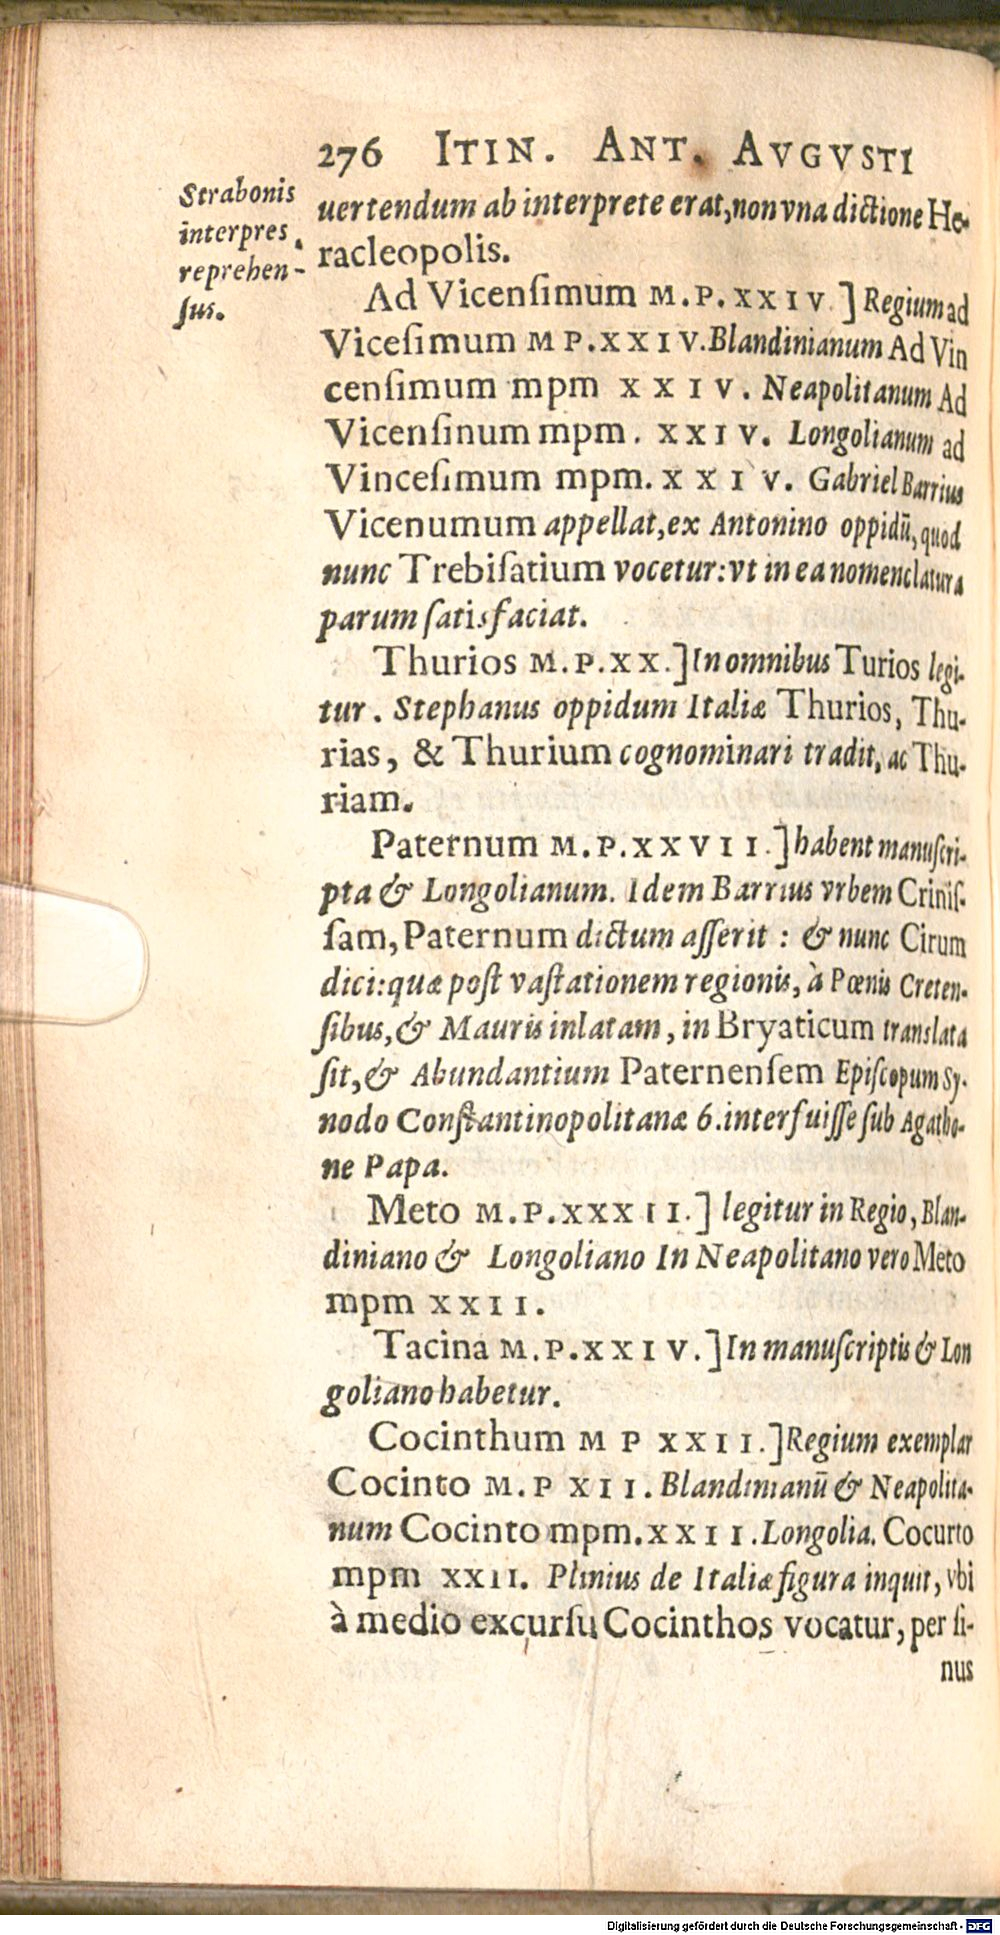 276 ITIN. ANT. AVGVSTI
Strabonis
interpres
reprehen-
ſus.
uertendum ab interprete erat, non vna dictione He-
racleopolis.
Ad Vicenſimum M.P.XXIV.] Regium ad
Viceſimum M P.XXIV. Blandinianum Ad Vin
cenſimum mpm XXIV. Neapolitanum Ad
Vicenſinum mpm. XXIV. Longolianum ad
Vinceſimum mpm. XXIV. Gabriel Barrius
Vicenumum appellat, ex Antonino oppidū, quod
nunc Trebiſatium vocetur: vt in ea nomenclatura
parum ſatisfaciat.
Thurios M.P.XX.] In omnibus Turios legi-
tur. Stephanus oppidum Italiæ Thurios, Thu-
rias, & Thurium cognominari tradit, ac Thu-
riam.
Paternum M.P.XXVII.] habent manuſcri-
pta & Longolianum. Idem Barrius vrbem Criniſ-
ſam, Paternum dictum aſſerit : & nunc Cirum
dici: quæ poſt vaſtationem regionis, à Pœnis Creten-
ſibus, & Mauris inlatam, in Bryaticum translata
ſit, & Abundantium Paternenſem Epiſcopum Sy-
nodo Conſtantinopolitanæ 6. interfuiſſe ſub Agatho-
ne Papa.
Meto M.P.XXXII.] legitur in Regio, Blan-
diniano & Longoliano In Neapolitano vero Meto
mpm XXII.
Tacina M.P.XXIV.] In manuſcriptis & Lon
goliano habetur.
Cocinthum M P XXII.] Regium exemplar
Cocinto M.P XII. Blandinianū & Neapolita-
num Cocinto mpm.XXII. Longolia. Cocurto
mpm XXII. Plinius de Italiæ figura inquit, vbi
à medio excurſu Cocinthos vocatur, per ſi-
nus
Digitalisierung gefördert durch die Deutsche Forschungsgemeinschaft - DFG